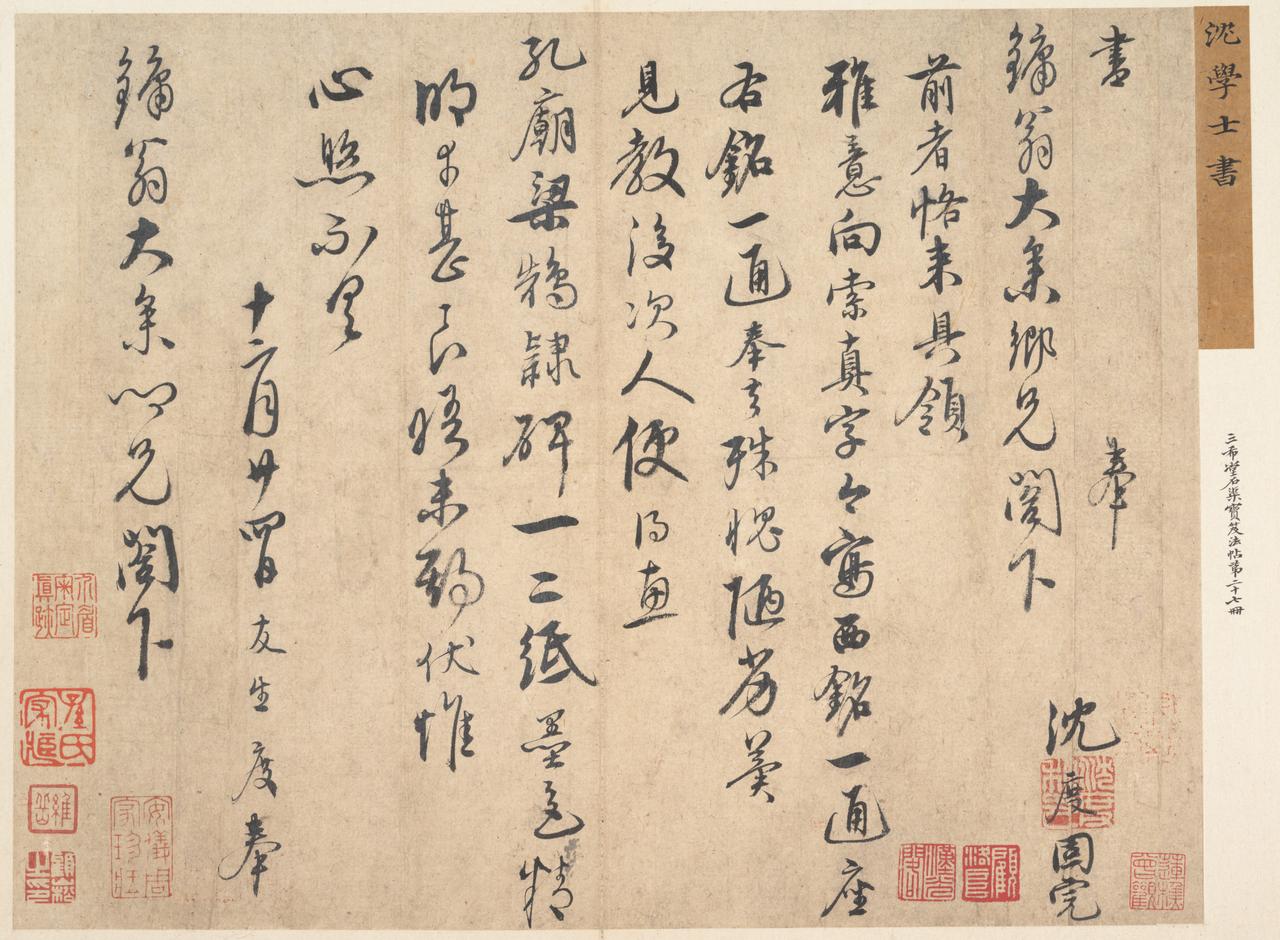 沈學士書
三希堂石渠寶笈法帖第二十七冊
書 奉
鏞翁大參鄉兄閣下 沈度固完
前者恪來具領
雅意向索真字今寫西銘一通座
右銘一通奉去殊愧陋劣冀
見教後次人便得惠
孔廟梁鵠隸碑一二紙墨色精
明者甚良晤未期伏惟
心照不具
十二月廿四日友生度奉
鏞翁大參鄉兄閣下